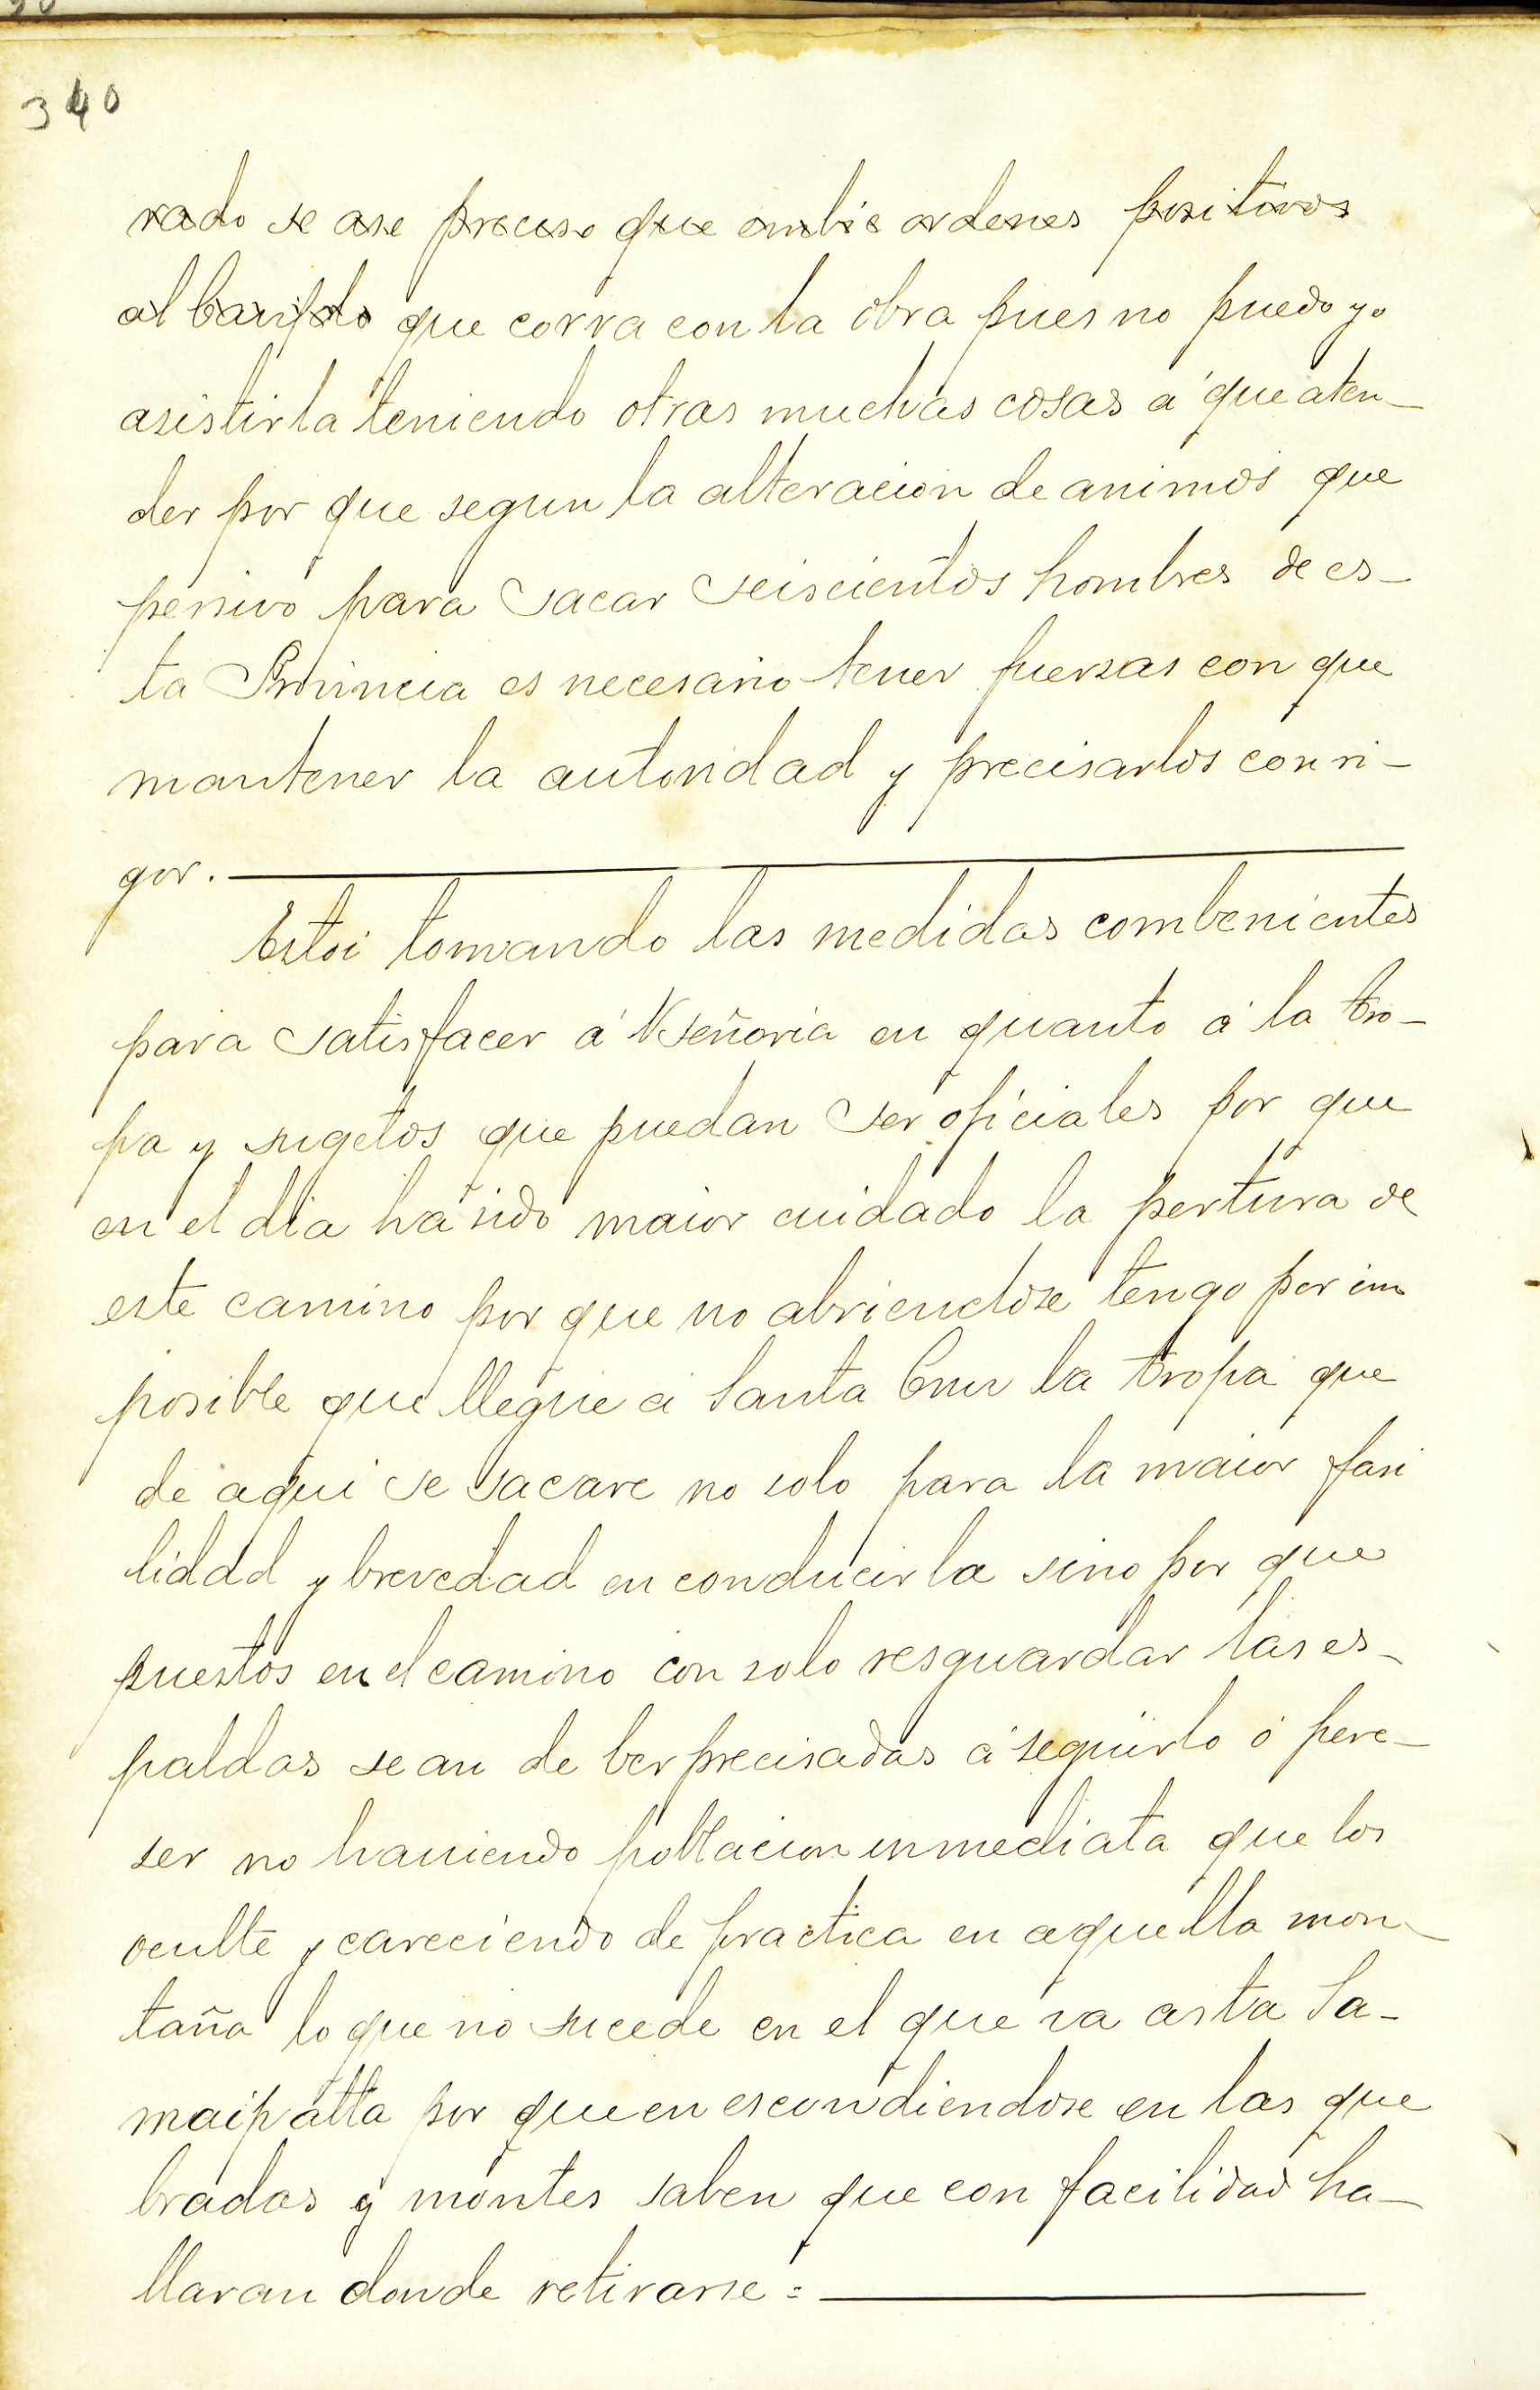 340
rado se ase preciso que embie ordenes positivos
al que corra con la obra pues no puedo yo
asistirla teniendo otras muchas cosas á que aten-
der por que segun la alteracion de animos que
persivo para sacar seiscientos hombres de es-
ta Provincia es necesario tener fuersas con que
mantener la autoridad y precisarlos con ri-
gor.
Estoi tomando las medidas combenientes
para satisfacer á VSeñoria en quanto á la tro-
pa y sugetos que puedan ser oficiales por que
en el dia ha sido maior cuidado la pertura de
este camino por que no abriendose tengo por im
posible que llegue á Santa Cruz la tropa que
de aqui se sacare no solo para la maior fasi
lidad y brevedad en conducirla sino por que
puestos en el camino con solo resguardar las es-
paldas se an de ber precisadas á seguirlo ó pere-
ser no haviendo poblacion inmediata que los
oculte y careciendo de practica en aquella mon-
taña lo que no sucede en el que va asta Sa-
maipatta por que en escondiendose en las que
bradas y montes saben que con facilidad ha-
llaran donde retirarse =